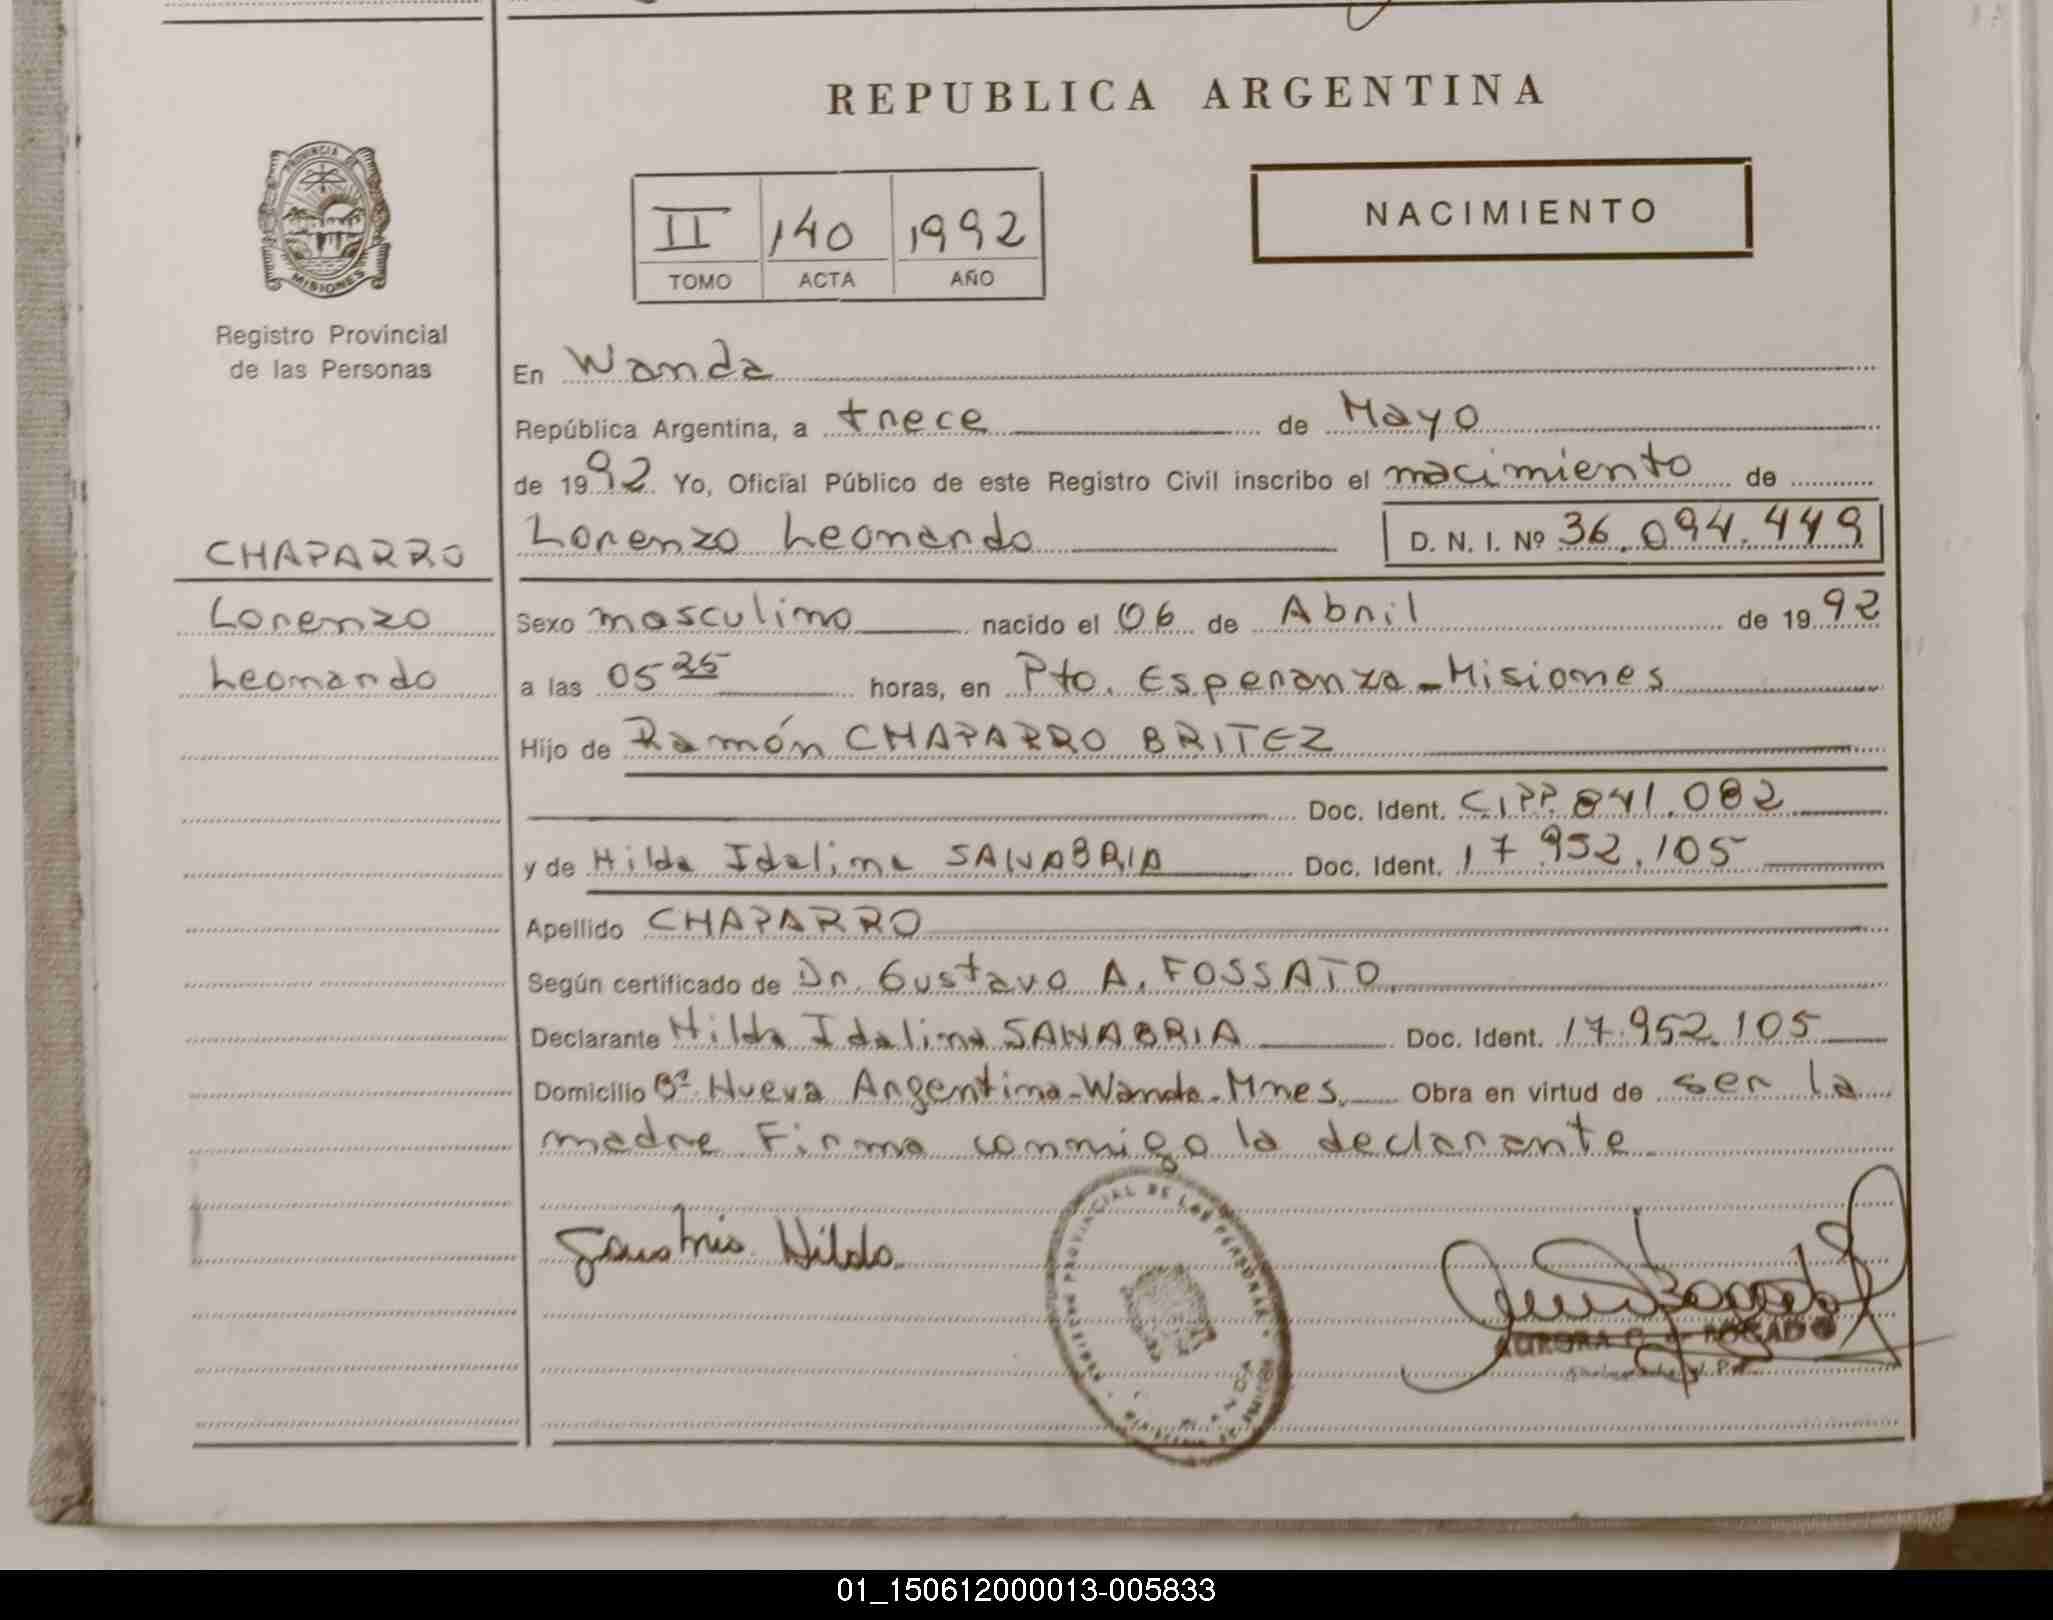 REPUBLICA ARGENTINA
PROVINCIA DE
MISIONES
II 140 1992
TOMO ACTA AÑO
NACIMIENTO
Registro Provincial
de las Personas
En Wanda
República Argentina, a trece de Mayo
de 1992 Yo, Oficial Público de este Registro Civil inscribo el nacimiento de
CHAPARRO
Lorenzo Leonardo D. N. I. Nº 36.094.449
Lorenzo
Leonardo
Sexo masculino nacido el 06 de Abril de 1992
a las 05 25 horas, en Pto. Esperanza - Misiones
Hijo de Ramón CHAPARRO BRITEZ
Doc. Ident. C.I.P.P. 841.082
y de Hilda Idalina SANABRIA Doc. Ident. 17.952.105
Apellido CHAPARRO
Según certificado de Dr. Gustavo A. FOSSATO
Declarante Hilda Idalina SANABRIA Doc. Ident. 17.952.105
Domicilio Bº Nueva Argentina - Wanda - Mnes. Obra en virtud de ser la
madre Firma conmigo la declarante
Hilda
PROVINCIAL DE LAS PERSONAS
WANDA
AURORA
01_150612000013-005833